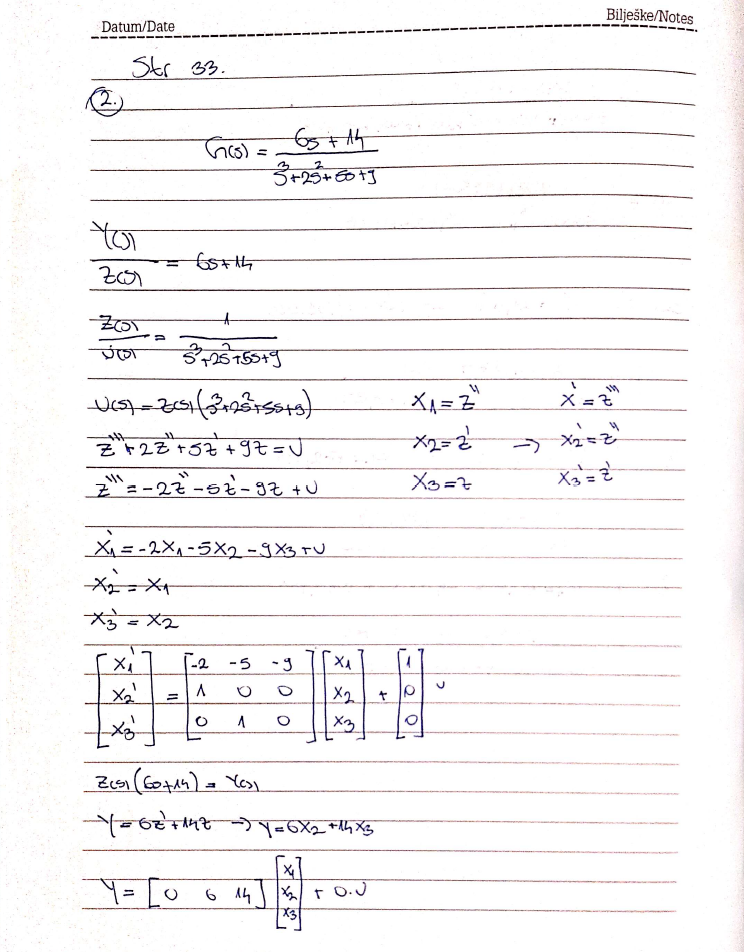 Datum/Date
Bilješke/Notes
Str 33.
2.
G(s) = (6s + 14) / (s³+2s²+5s+9)
Y(s) / Z(s) = 6s+14
Z(s) / U(s) = 1 / (s³+2s²+5s+9)
U(s) = Z(s) (s³+2s²+5s+9) X1 = z'' X' = z'''
z''' + 2z'' + 5z' + 9z = U X2 = z' → X2' = z''
z''' = -2z'' - 5z' - 9z + U X3 = z X3' = z'
X1' = -2X1 - 5X2 - 9X3 + U
X2' = X1
X3' = X2
[X1'] = [-2 -5 -9] [X1] + [1] U
[X2'] [1 0 0] [X2] [0]
[X3'] [0 1 0] [X3] [0]
Z(s) (6s+14) = Y(s)
Y = 6z' + 14z → Y = 6X2 + 14X3
Y = [0 6 14] [X1 X2 X3] + 0·U